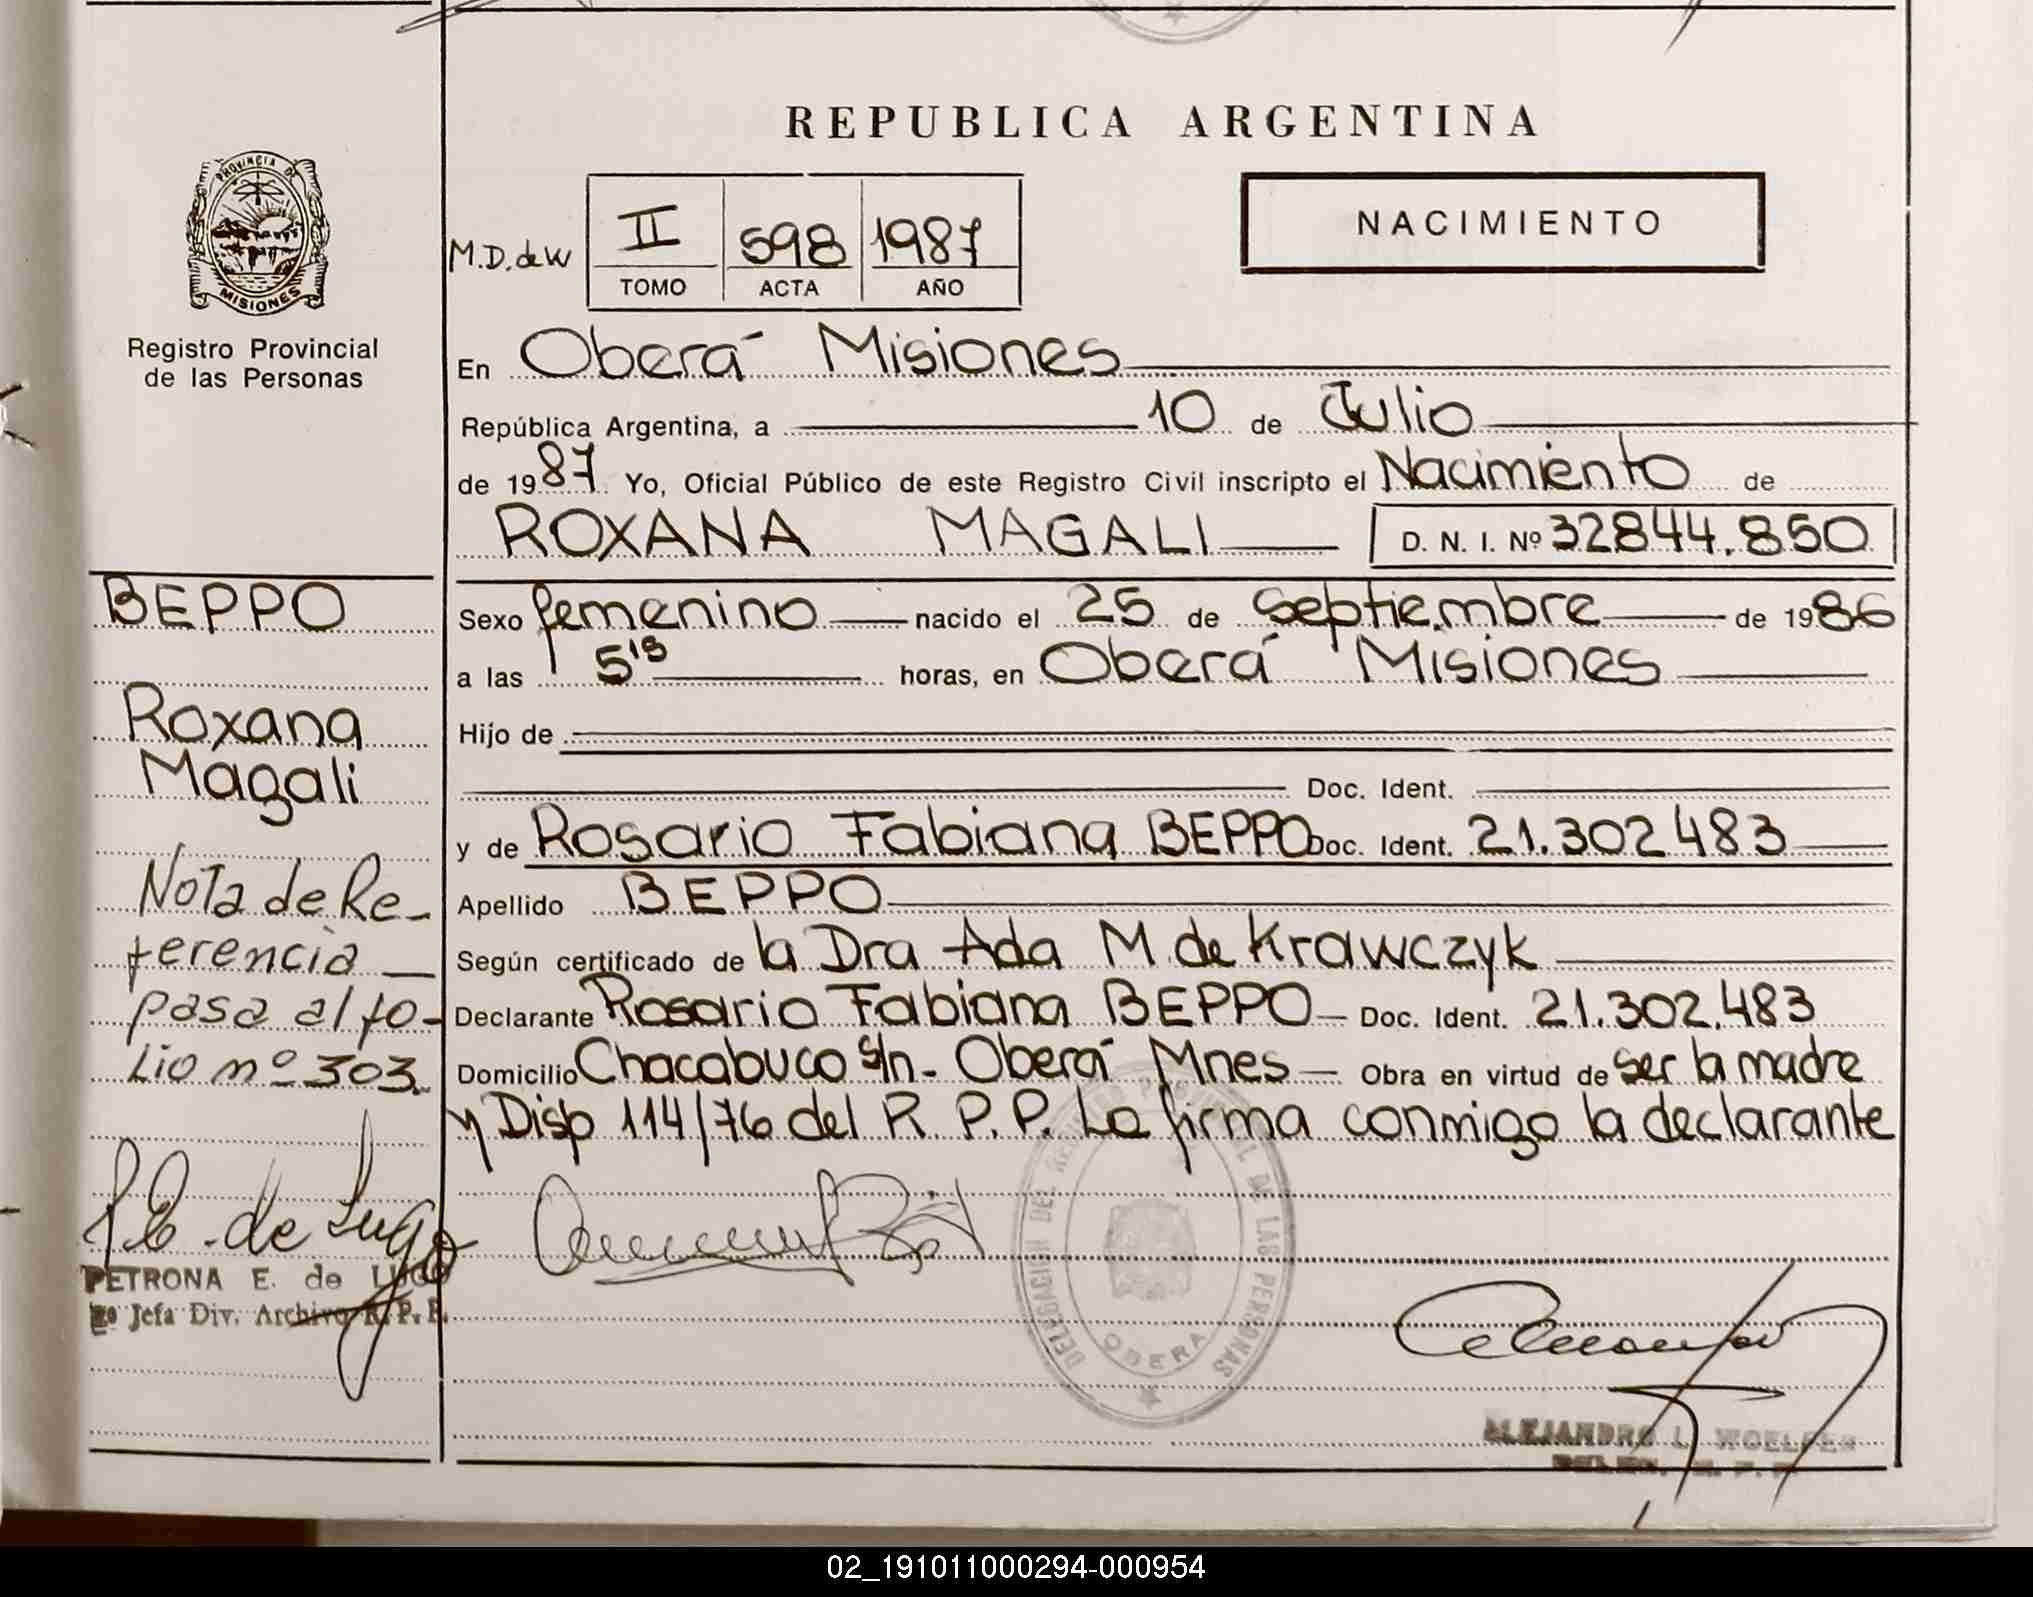 REPUBLICA ARGENTINA
PROVINCIA DE
MISIONES
Registro Provincial
de las Personas
M.D. de W
II 598 1987
TOMO ACTA AÑO
NACIMIENTO
En Oberá Misiones
República Argentina, a 10 de Julio
de 1987 Yo, Oficial Público de este Registro Civil inscripto el Nacimiento de
ROXANA MAGALI D. N. I. Nº 32844.850
Sexo femenino nacido el 25 de Septiembre de 1986
a las 5¹⁵ horas, en Oberá Misiones
Hijo de
Doc. Ident.
y de Rosario Fabiana BEPPO Doc. Ident. 21.302483
Apellido BEPPO
Según certificado de la Dra Ada M. de Krawczyk
Declarante Rosario Fabiana BEPPO Doc. Ident. 21.302.483
Domicilio Chacabuco s/n - Oberá Mnes Obra en virtud de ser la madre
y Disp 114/76 del R. P. P. La firma conmigo la declarante
BEPPO
Roxana
Magali
Nota de Re-
ferencia
pasa al fo-
lio nº 303.
P.E. de Lugo
PETRONA E. de LUGO
Jefa Div. Archivo R.P.P.
DELEGACION DEL REGISTRO PROVINCIAL DE LAS PERSONAS
OBERA
ALEJANDRO L. WOELFER
02_191011000294-000954